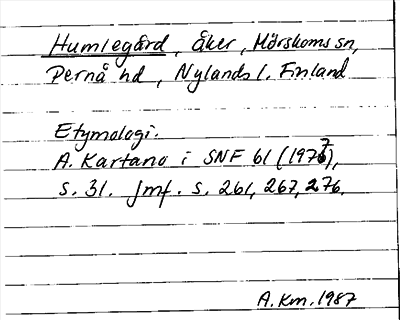 Humlegård, åker, Mörskoms sn,
Pernå hd, Nylands l. Finland
Etymologi.
A. Kartano i SNF 61 (1977),
s. 31. Jmf. s. 261, 267, 276.
A.Km.1987